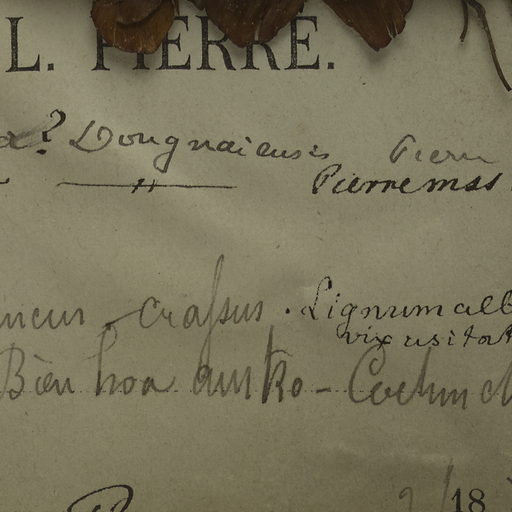 L. PIERRE.
a? Dongnaiensis Pierre
— " — Pierre mss
crassus. Lignum alb
vix usitat
Bien hoa austro - Cochinch
18